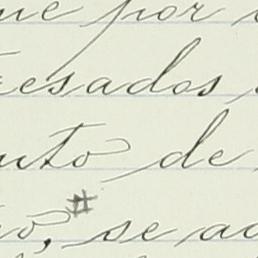 ue por
esados
nto de
ro, se ac